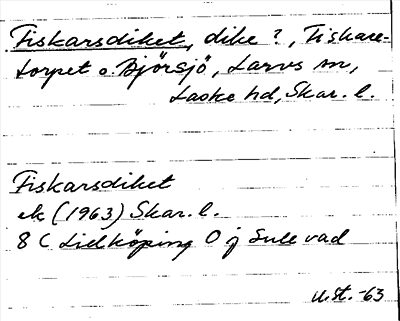 Fiskarsdiket, dike ?, Fiskare-
torpet o. Björsjö, Larvs sn,
Laske hd, Skar. l.
Fiskarsdiket
ek (1963) Skar. l.
8 C Lidköping 0 j Sulevad
U.St. -63